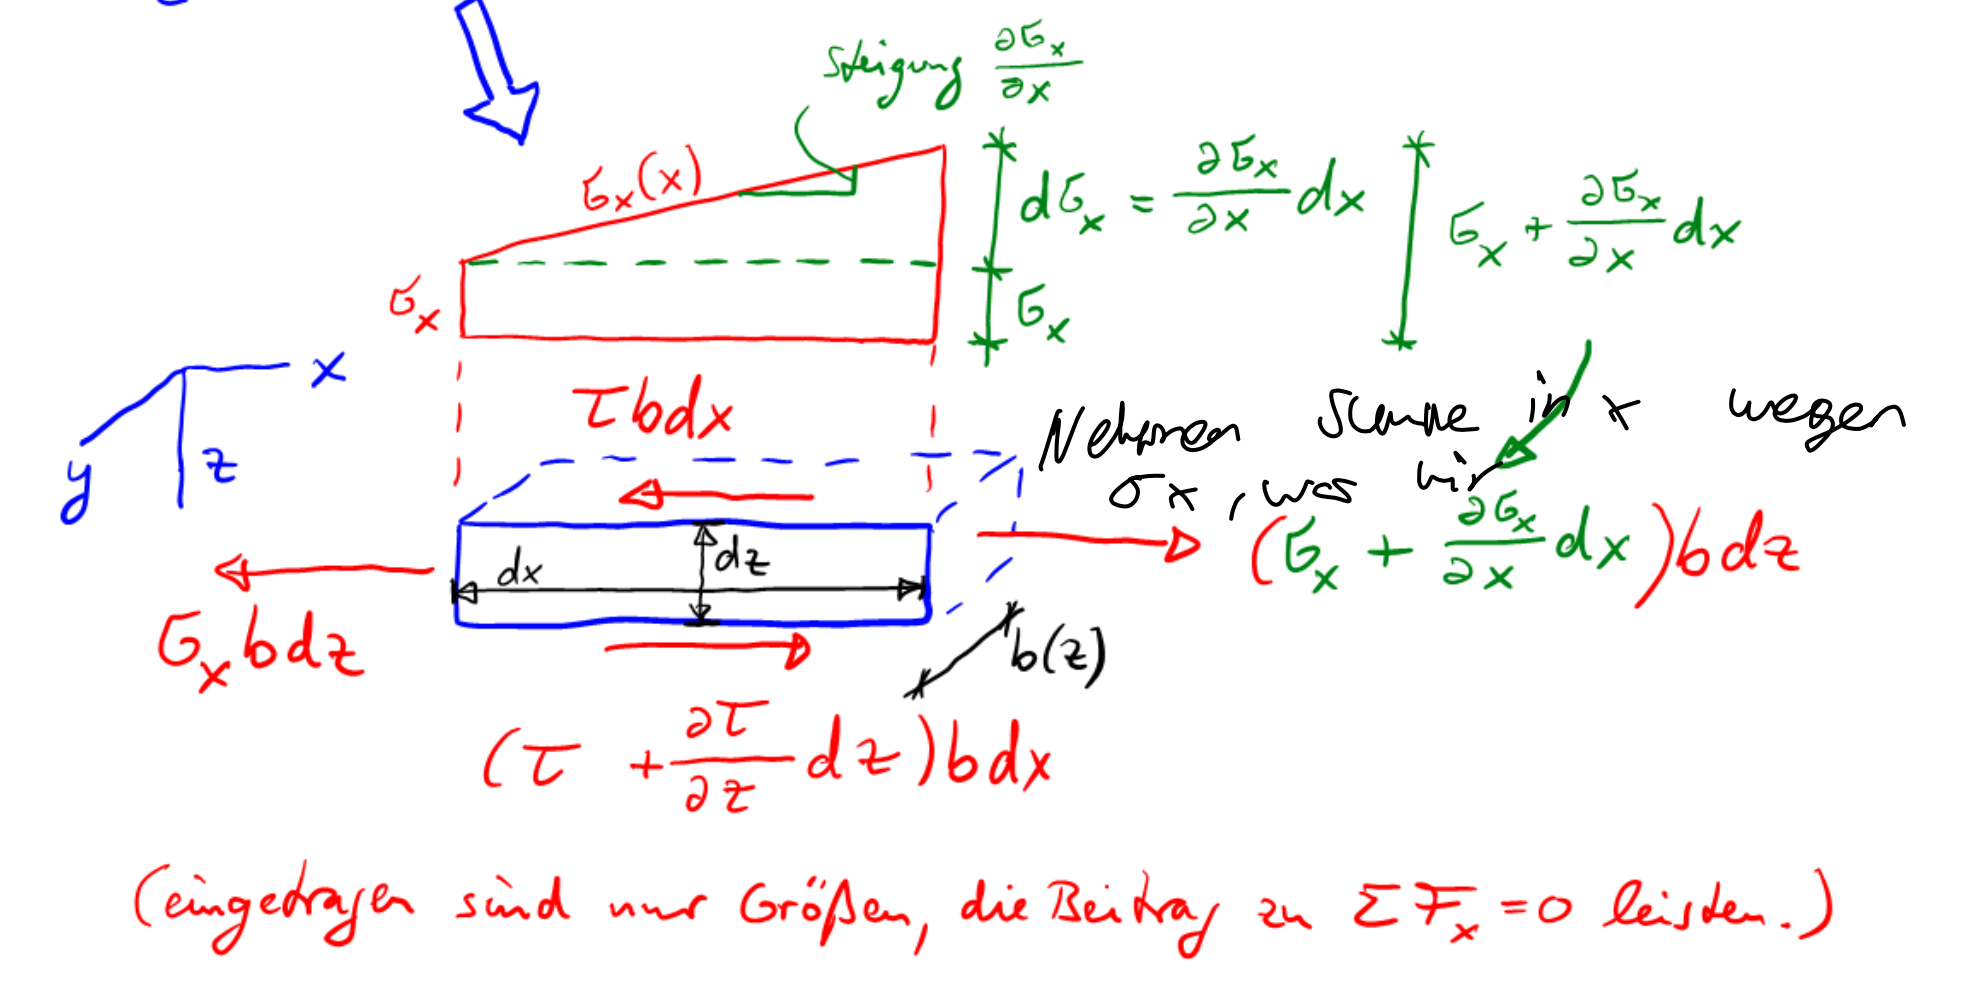 Steigung ∂σx/∂x
σx(x)
dσx = ∂σx/∂x dx
σx + ∂σx/∂x dx
σx
σx
x
y
z
τbdx
Nehmen Summe in x wegen
σx, was wir
dx
dz
(σx + ∂σx/∂x dx)bdz
σx bdz
b(z)
(τ + ∂τ/∂z dz)bdx
(eingetragen sind nur Größen, die Beitrag zu ΣFx = 0 leisten.)